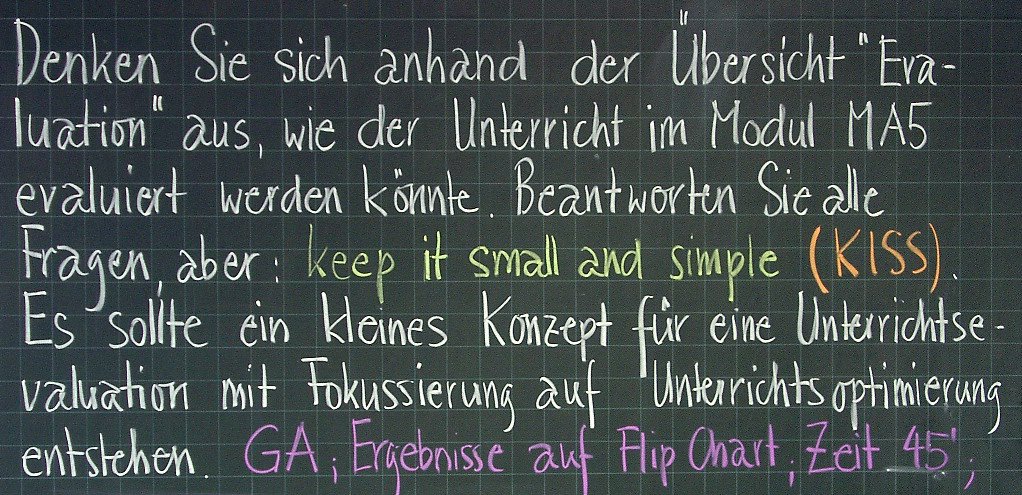 Denken Sie sich anhand der Übersicht "Eva-
luation" aus, wie der Unterricht im Modul MA5
evaluiert werden könnte. Beantworten Sie alle
Fragen, aber: keep it small and simple (KISS).
Es sollte ein kleines Konzept für eine Unterrichtse-
valuation mit Fokussierung auf Unterrichtsoptimierung
entstehen. GA; Ergebnisse auf Flip Chart; Zeit 45';